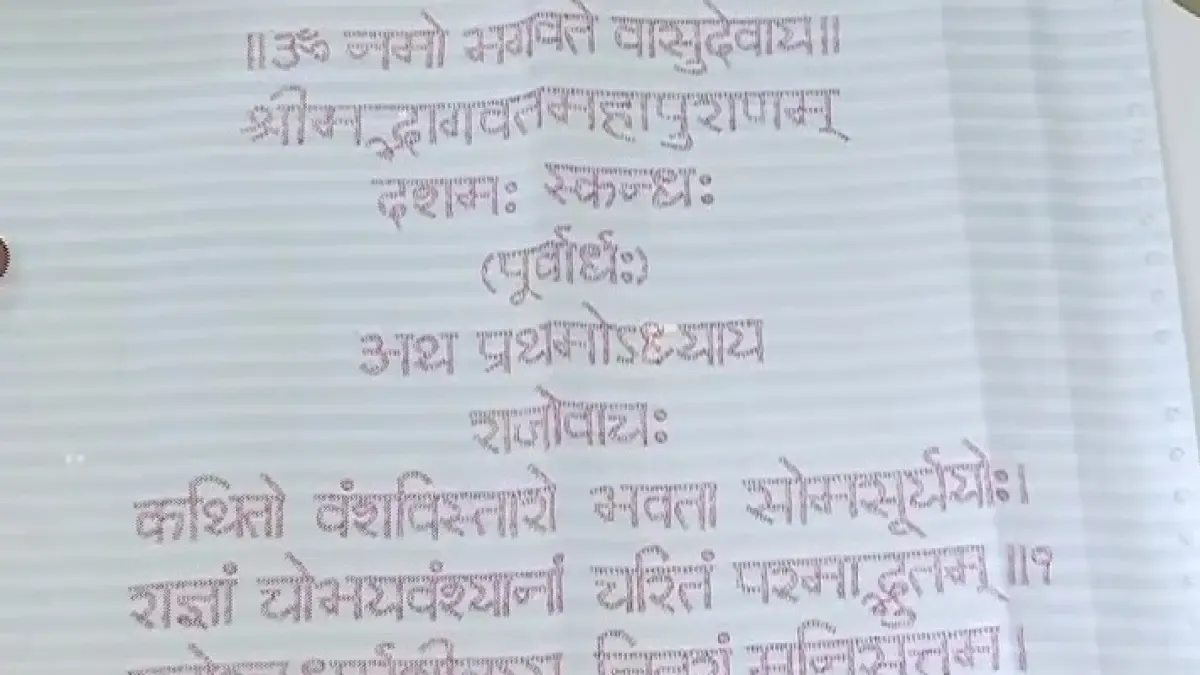 ॥ॐ नमो भगवते वासुदेवाय॥
श्रीमद्भागवतमहापुराणम्
दशमः स्कन्धः
(पूर्वार्धः)
अथ प्रथमोऽध्याय
राजोवाचः
कथितो वंशविस्तारो भवता सोमसूर्ययोः।
राज्ञां चोभयवंश्यानां चरितं परमाद्भुतम् ॥१
नितरां मुनिसत्तम।